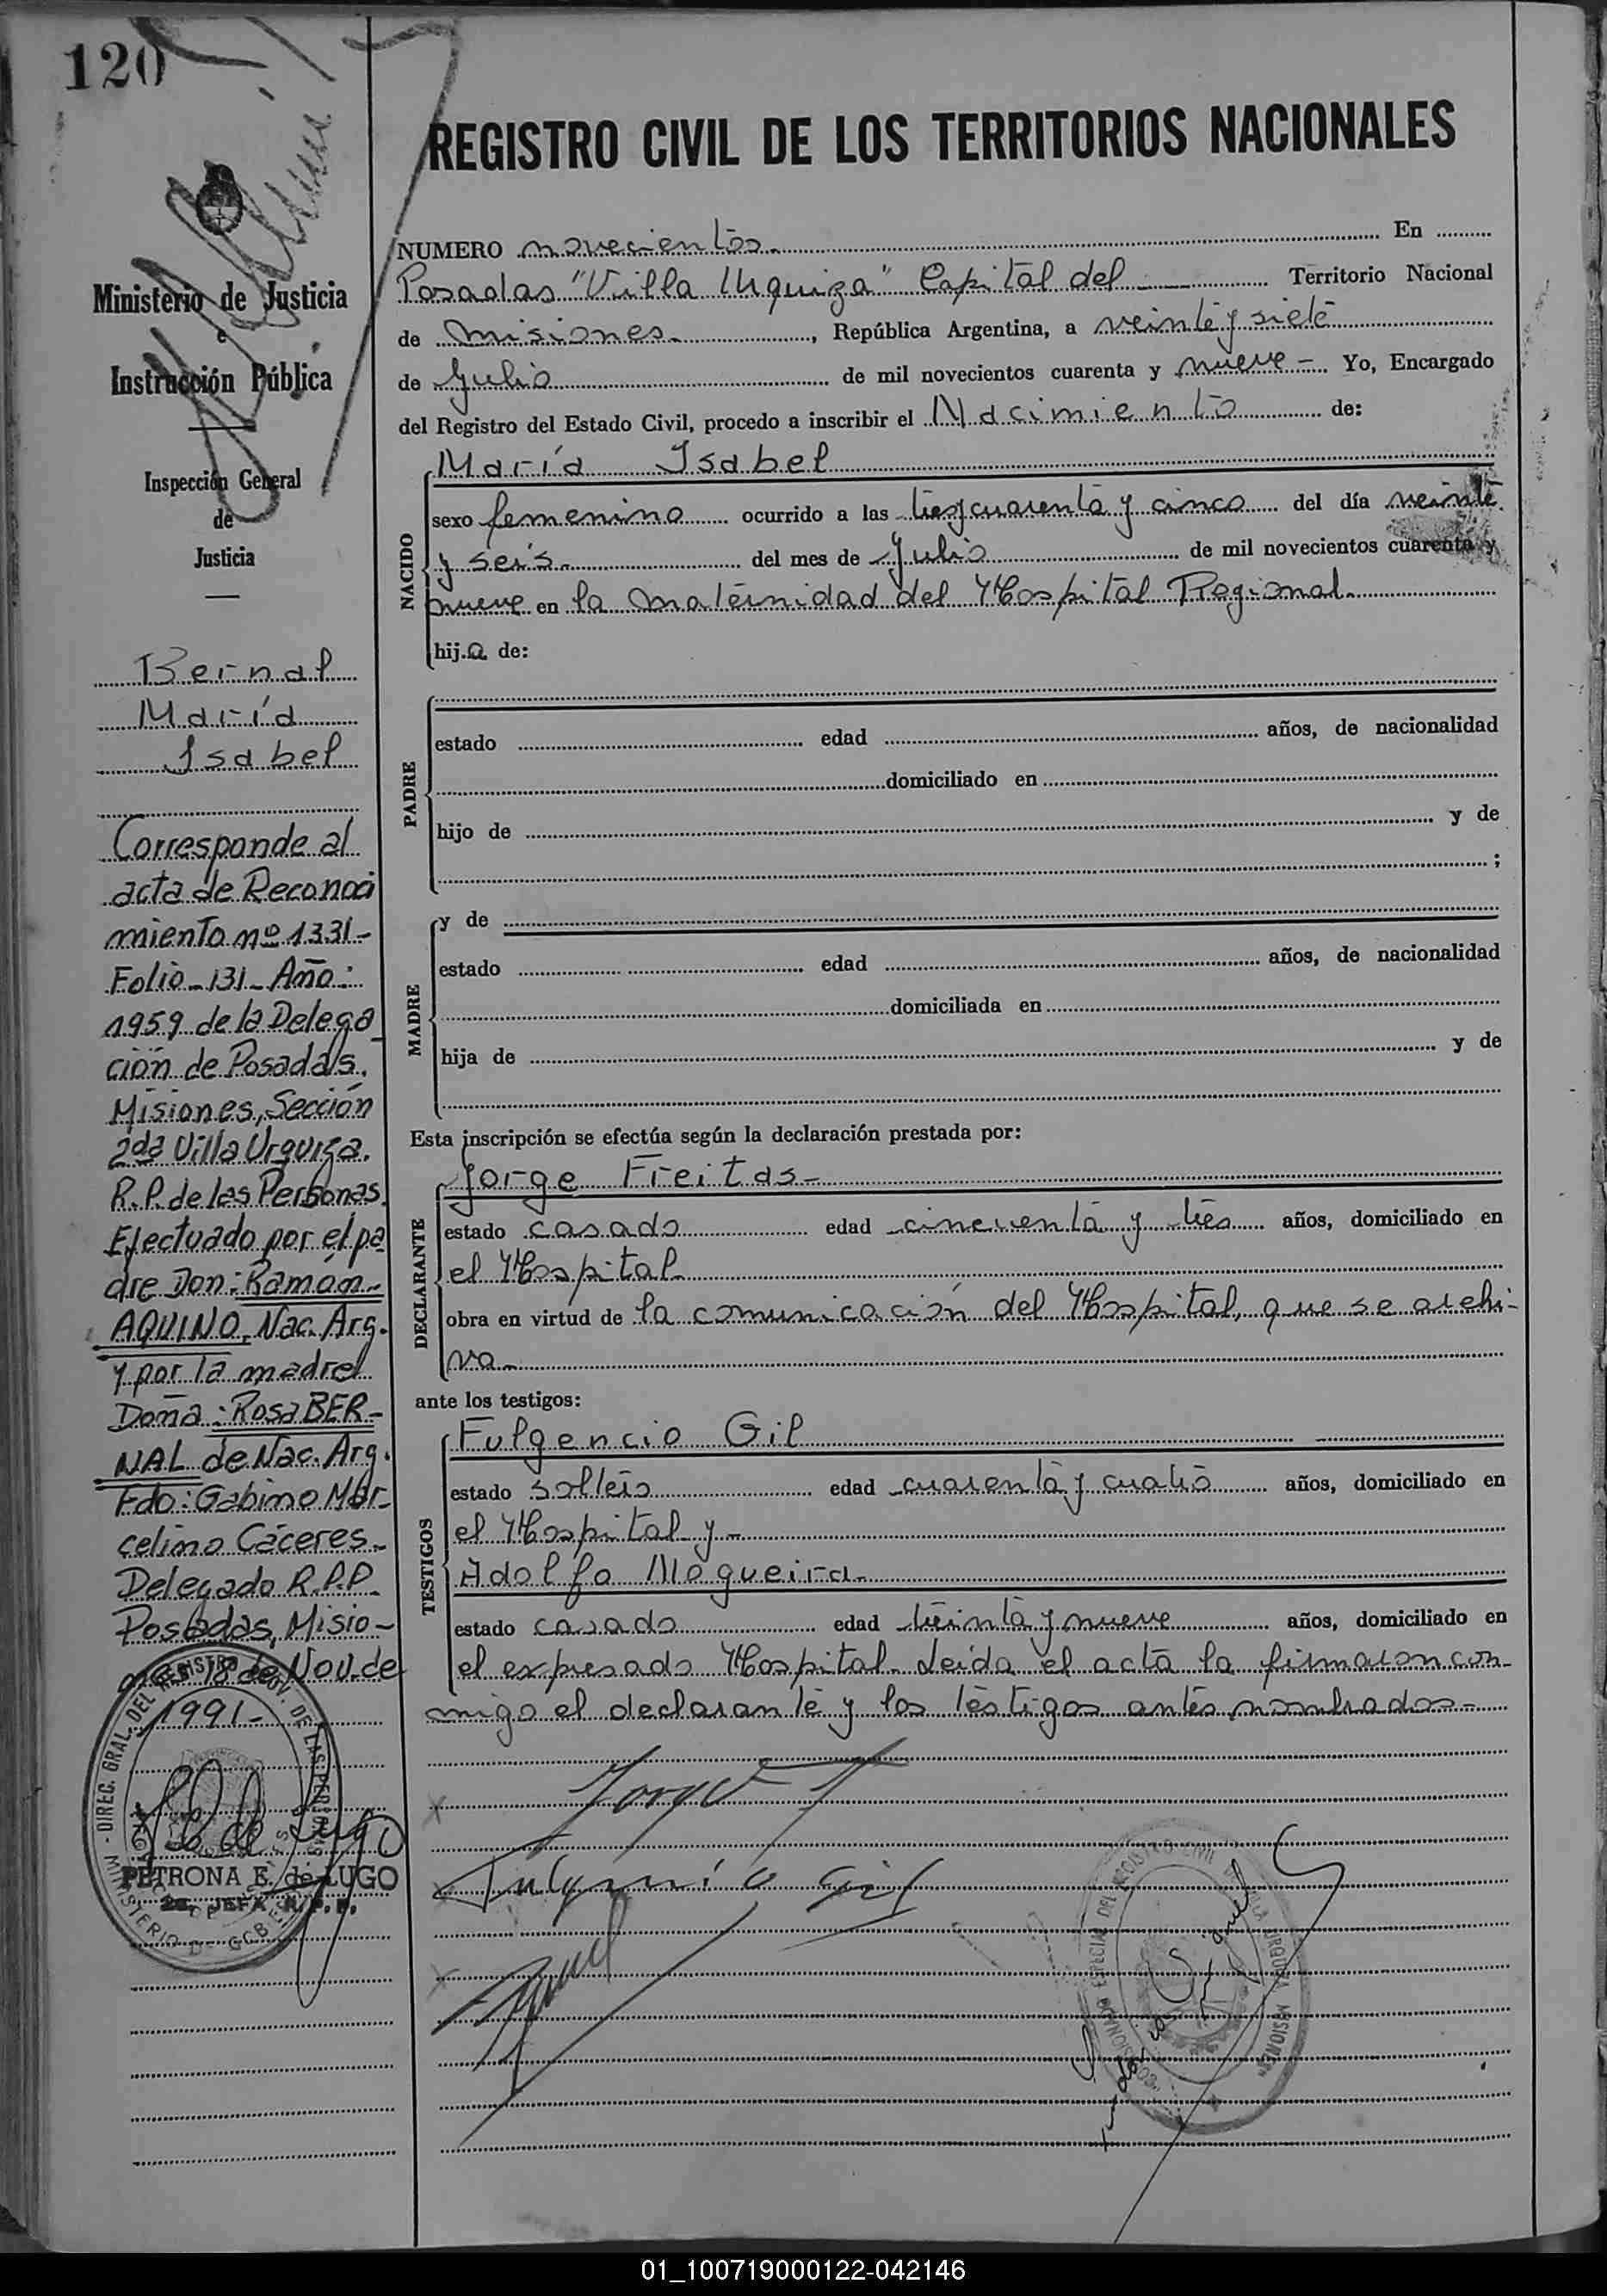 120
REGISTRO CIVIL DE LOS TERRITORIOS NACIONALES
Ministerio de Justicia
e
Instrucción Pública
Inspección General
de
Justicia
Bernal
María
Isabel
Corresponde al
acta de Reconoci
miento nº 1331-
Folio-131-Año:
1959 de la Delega
ción de Posadas,
Misiones, Sección
2da Villa Urquiza.
R.P. de las Personas.
Efectuado por el pa
dre Don: Ramón-
AQUINO, Nac. Arg.
y por la madre
Doña: Rosa BER-
NAL de Nac. Arg.
Fdo: Gabino Mar-
celino Cáceres-
Delegado R.P.P.
Posadas, Misio-
nes 18 de Nov. de
1991-
PETRONA E. de LUGO
2a. JEFA R.P.P.
NUMERO novecientos. En
Posadas "Villa Urquiza" Capital del Territorio Nacional
de Misiones., República Argentina, a veinte y siete
de Julio de mil novecientos cuarenta y nueve - Yo, Encargado
del Registro del Estado Civil, procedo a inscribir el Nacimiento de:
NACIDO
María Isabel
sexo femenino ocurrido a las tres y cuarenta y cinco del día veinte
y seis. del mes de Julio de mil novecientos cuarenta y
nueve en la maternidad del Hospital Regional.
hij.a de:
PADRE
estado edad años, de nacionalidad
domiciliado en
hijo de y de
;
MADRE
y de
estado edad años, de nacionalidad
domiciliada en
hija de y de
Esta inscripción se efectúa según la declaración prestada por:
DECLARANTE
Jorge Freitas-
estado casado edad cincuenta y tres años, domiciliado en
el Hospital.
obra en virtud de la comunicación del Hospital, que se archi-
va-
ante los testigos:
TESTIGOS
Fulgencio Gil
estado soltero edad cuarenta y cuatro años, domiciliado en
el Hospital y-
Adolfo Nogueira-
estado casado edad treinta y nueve años, domiciliado en
el expresado Hospital. Leída el acta la firmaron con-
migo el declarante y los testigos antes nombrados-
Jorge F
Fulgencio Gil
01_100719000122-042146